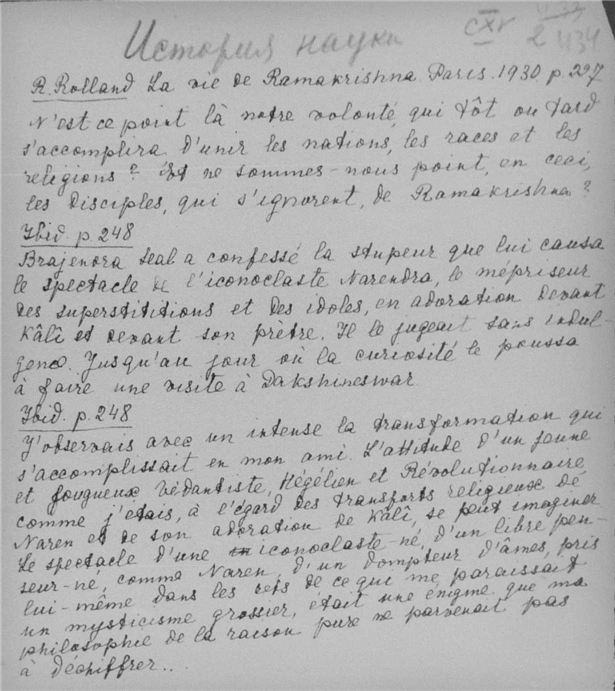 История науки
CXV
2 434
R. Rolland La vie de Ramakrishna Paris 1930 p. 227
N'est ce point là notre volonté, qui tôt ou tard
s'accomplira d'unir les nations, les races et les
religions? Et ne sommes-nous point, en ceci,
les disciples, qui s'ignorent, de Ramakrishna?
Ibid. p. 248
Brajendra Seal a confessé la stupeur que lui causa
le spectacle de l'iconoclaste Narendra, le mépriseur
des superstititions et des idoles, en adoration devant
Kâlî et devant son prêtre. Il le jugeait sans indul-
gence. Jusqu'au jour où la curiosité le poussa
à faire une visite à Dakshineswar
Ibid. p. 248
J'observais avec un intense la transformation qui
s'accomplissait en mon ami. L'attitude d'un jeune
et fougueux Védantiste, Hégélien et Révolutionnaire
comme j'etais, à l'égard des transports religieux de
Naren et de son adoration de Kâlî, se peut imaginer
Le spectacle d'une iconoclaste né, d'un libre pen-
seur-né, comme Naren, d'un dompteur d'âmes, pris
lui-même dans les rets de ce qui me paraissait
un mysticisme grossier, était une énigme que ma
philosophie de la raison pure ne parvenait pas
à déchiffrer...